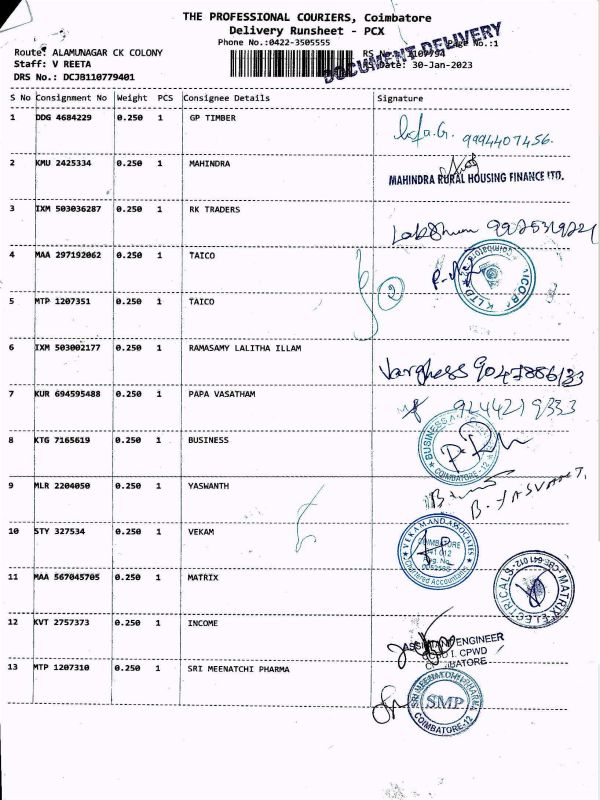 THE PROFESSIONAL COURIERS, Coimbatore
Delivery Runsheet - PCX
Phone No.:0422-3505555
Page No.:1
DOCUMENT DELIVERY
Route: ALAMUNAGAR CK COLONY
Staff: V REETA
Date: 30-Jan-2023
DRS No.: DCJB110779401
S No Consignment No Weight PCS Consignee Details Signature
1 DDG 4684229 0.250 1 GP TIMBER
9994407456.
2 KMU 2425334 0.250 1 MAHINDRA
MAHINDRA RURAL HOUSING FINANCE LTD.
3 IXM 503036287 0.250 1 RK TRADERS
4 MAA 297192062 0.250 1 TAICO
5 MTP 1207351 0.250 1 TAICO
2
6 IXM 503002177 0.250 1 RAMASAMY LALITHA ILLAM
Varghess 9047886133
7 KUR 694595488 0.250 1 PAPA VASATHAM
8 KTG 7165619 0.250 1 BUSINESS
BUSINESS
COIMBATORE-12
9 MLR 2204050 0.250 1 YASWANTH
10 STY 327534 0.250 1 VEKAM
VEKAM AND ASSOCIATES
COIMBATORE
Chartered Accountants
11 MAA 567045705 0.250 1 MATRIX
MATRIX ELECTRICALS
CBE-641 012
12 KVT 2757373 0.250 1 INCOME
ASSISTANT ENGINEER
CPWD
COIMBATORE
13 MTP 1207310 0.250 1 SRI MEENATCHI PHARMA
SRI MEENATCHI PHARMA
SMP
COIMBATORE-12